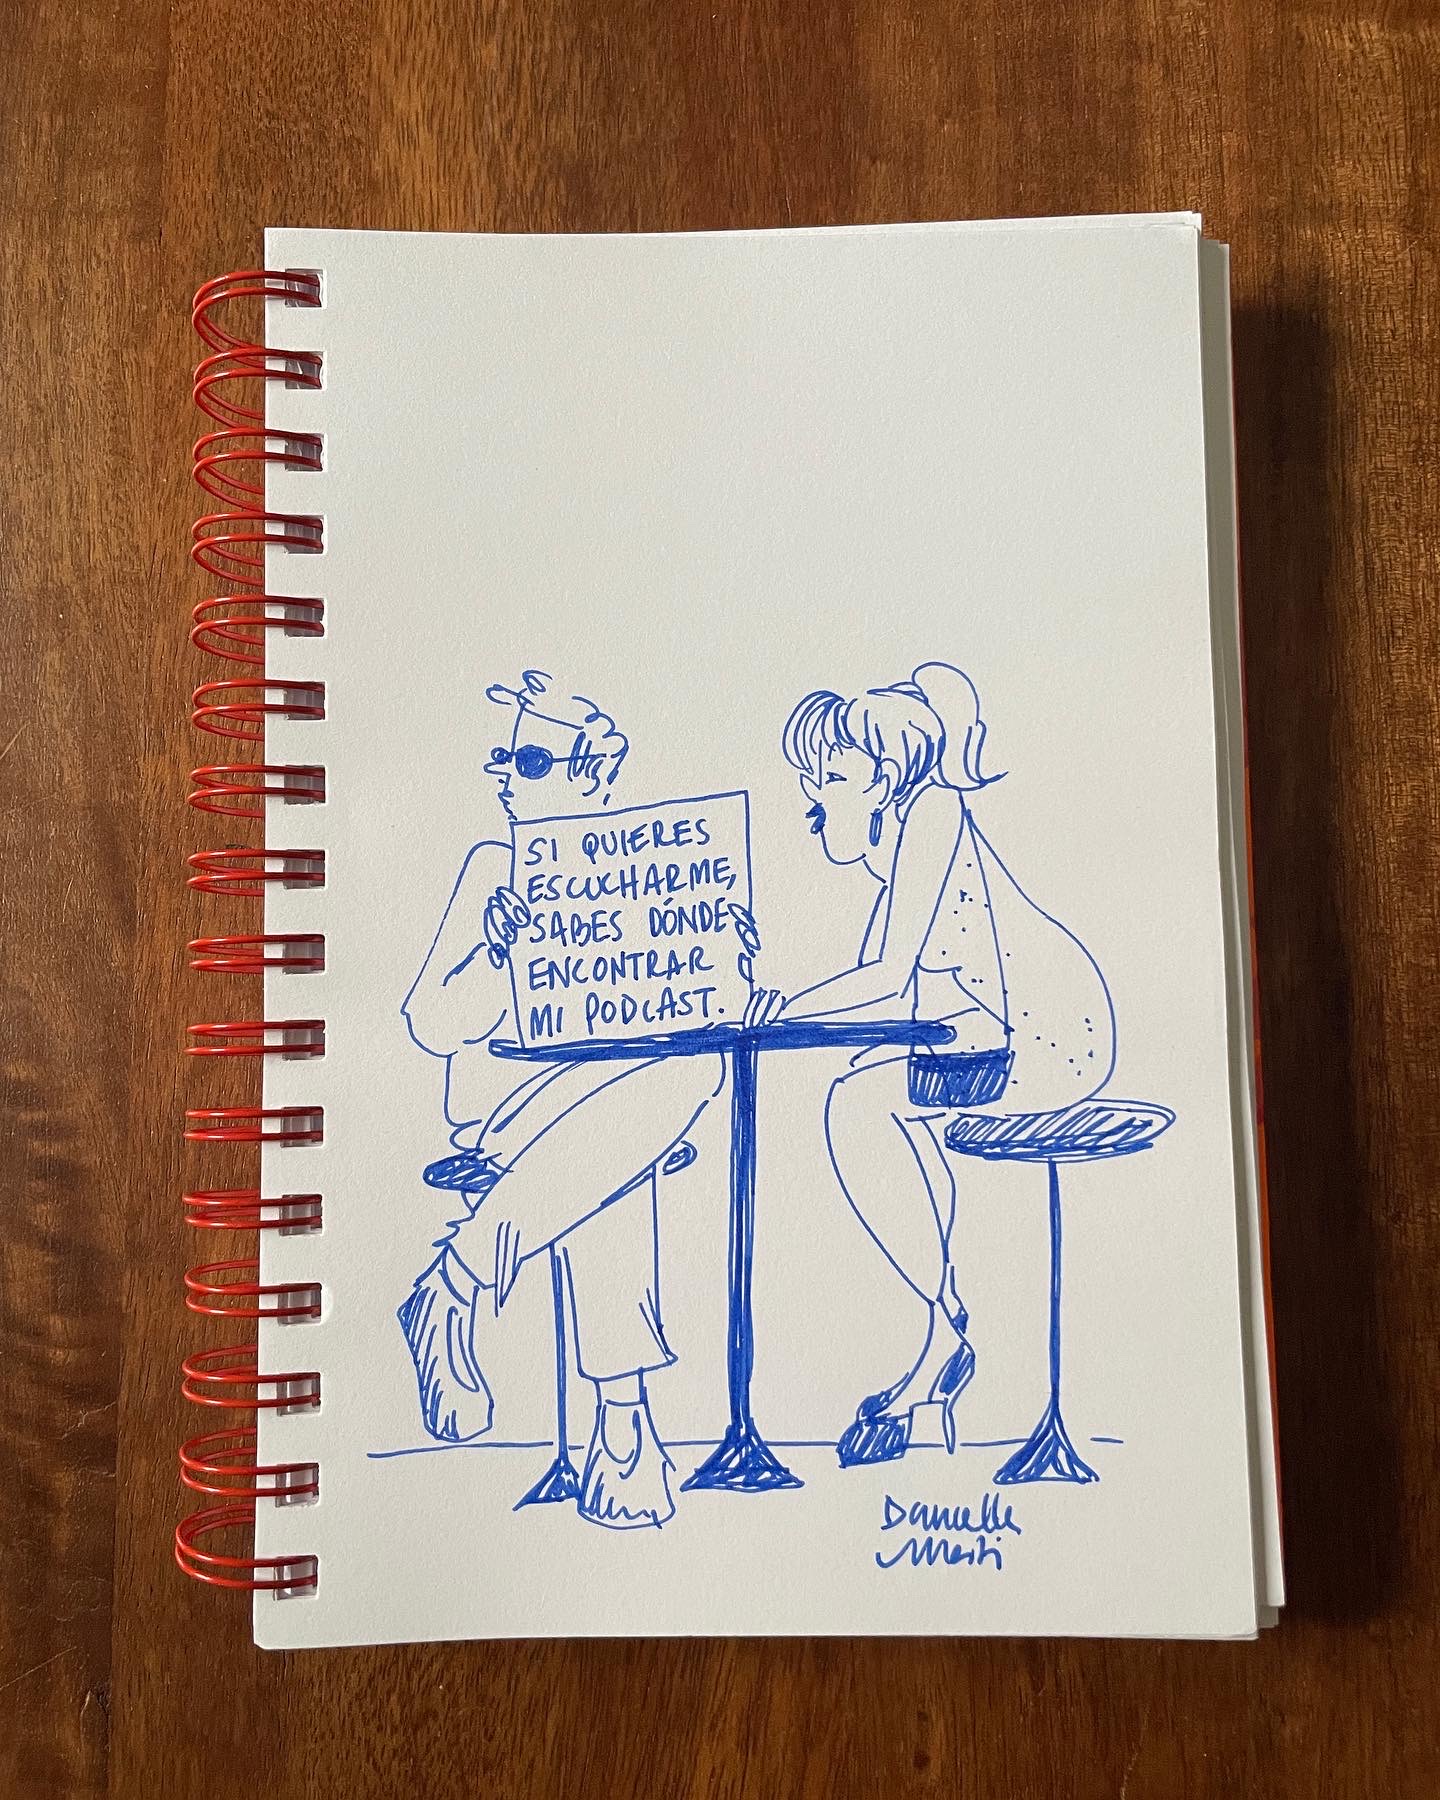 SI QUIERES
ESCUCHARME,
SABES DÓNDE
ENCONTRAR
MI PODCAST.
Danielle